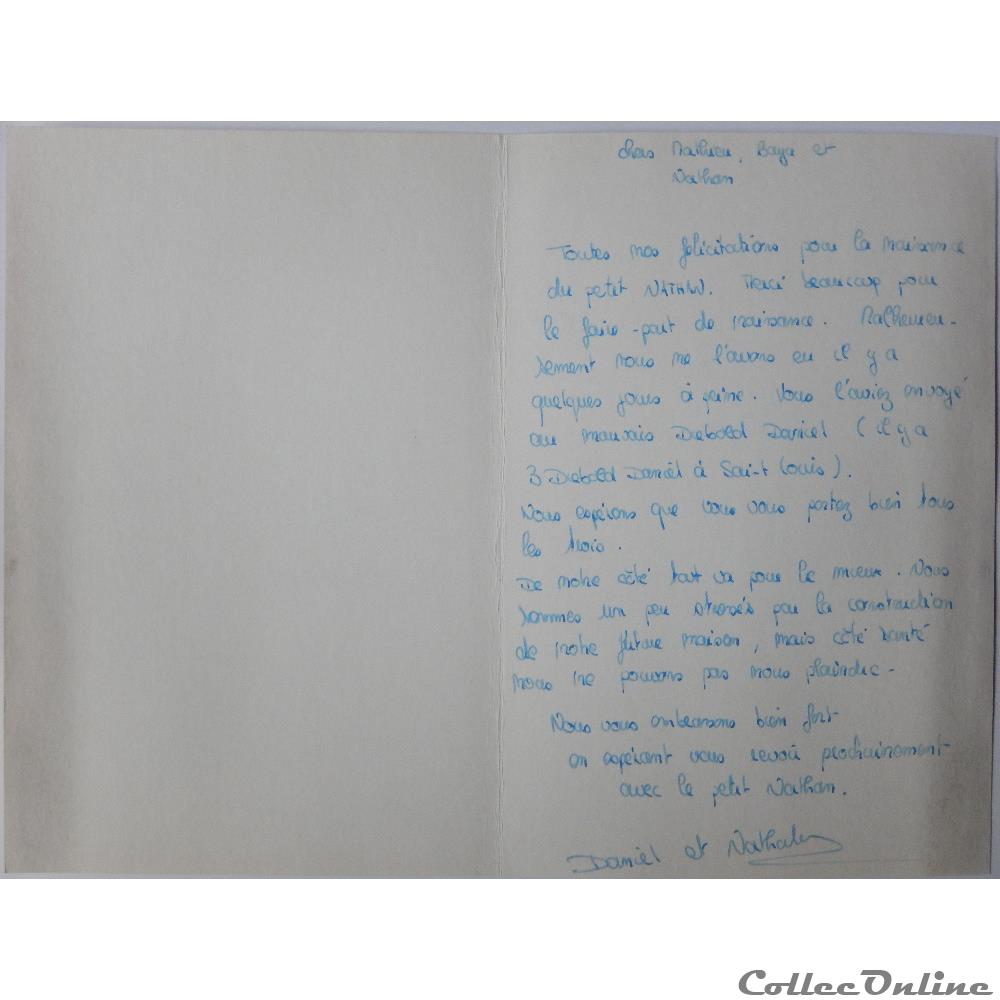 chers Mathieu, Baya et
Nathan
Toutes nos félicitations pour la naissance
du petit NATHAN. Merci beaucoup pour
le faire-part de naissance. Malheureu-
sement nous ne l'avons eu il y a
quelques jours à peine. Vous l'aviez envoyé
au mauvais Diebold Daniel (il y a
3 Diebold Daniel à Saint Louis).
Nous espérons que vous vous portez bien tous
les trois.
De notre côté tout va pour le mieux. Nous
sommes un peu stressés par la construction
de notre future maison, mais côté santé
nous ne pouvons pas nous plaindre.
Nous vous embrassons bien fort
en espérant vous revoir prochainement
avec le petit Nathan.
Daniel et Nathalie
CollecOnline